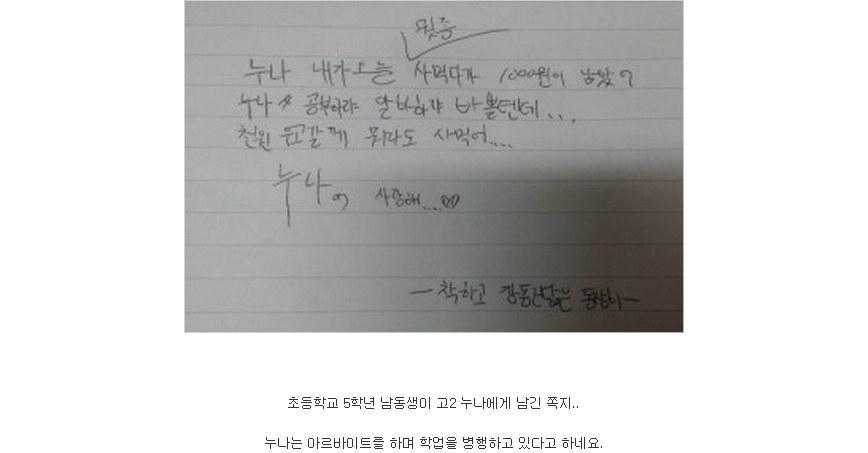 뭣좀
누나 내가 오늘 사먹다가 1000원이 남았어
누나 공부하랴 알바하랴 바쁠텐데...
천원 두고갈께 뭐라도 사먹어....
누나 사랑해...♡
- 착하고 강동원닮은 동생이 -
초등학교 5학년 남동생이 고2 누나에게 남긴 쪽지..
누나는 아르바이트를 하며 학업을 병행하고 있다고 하네요.